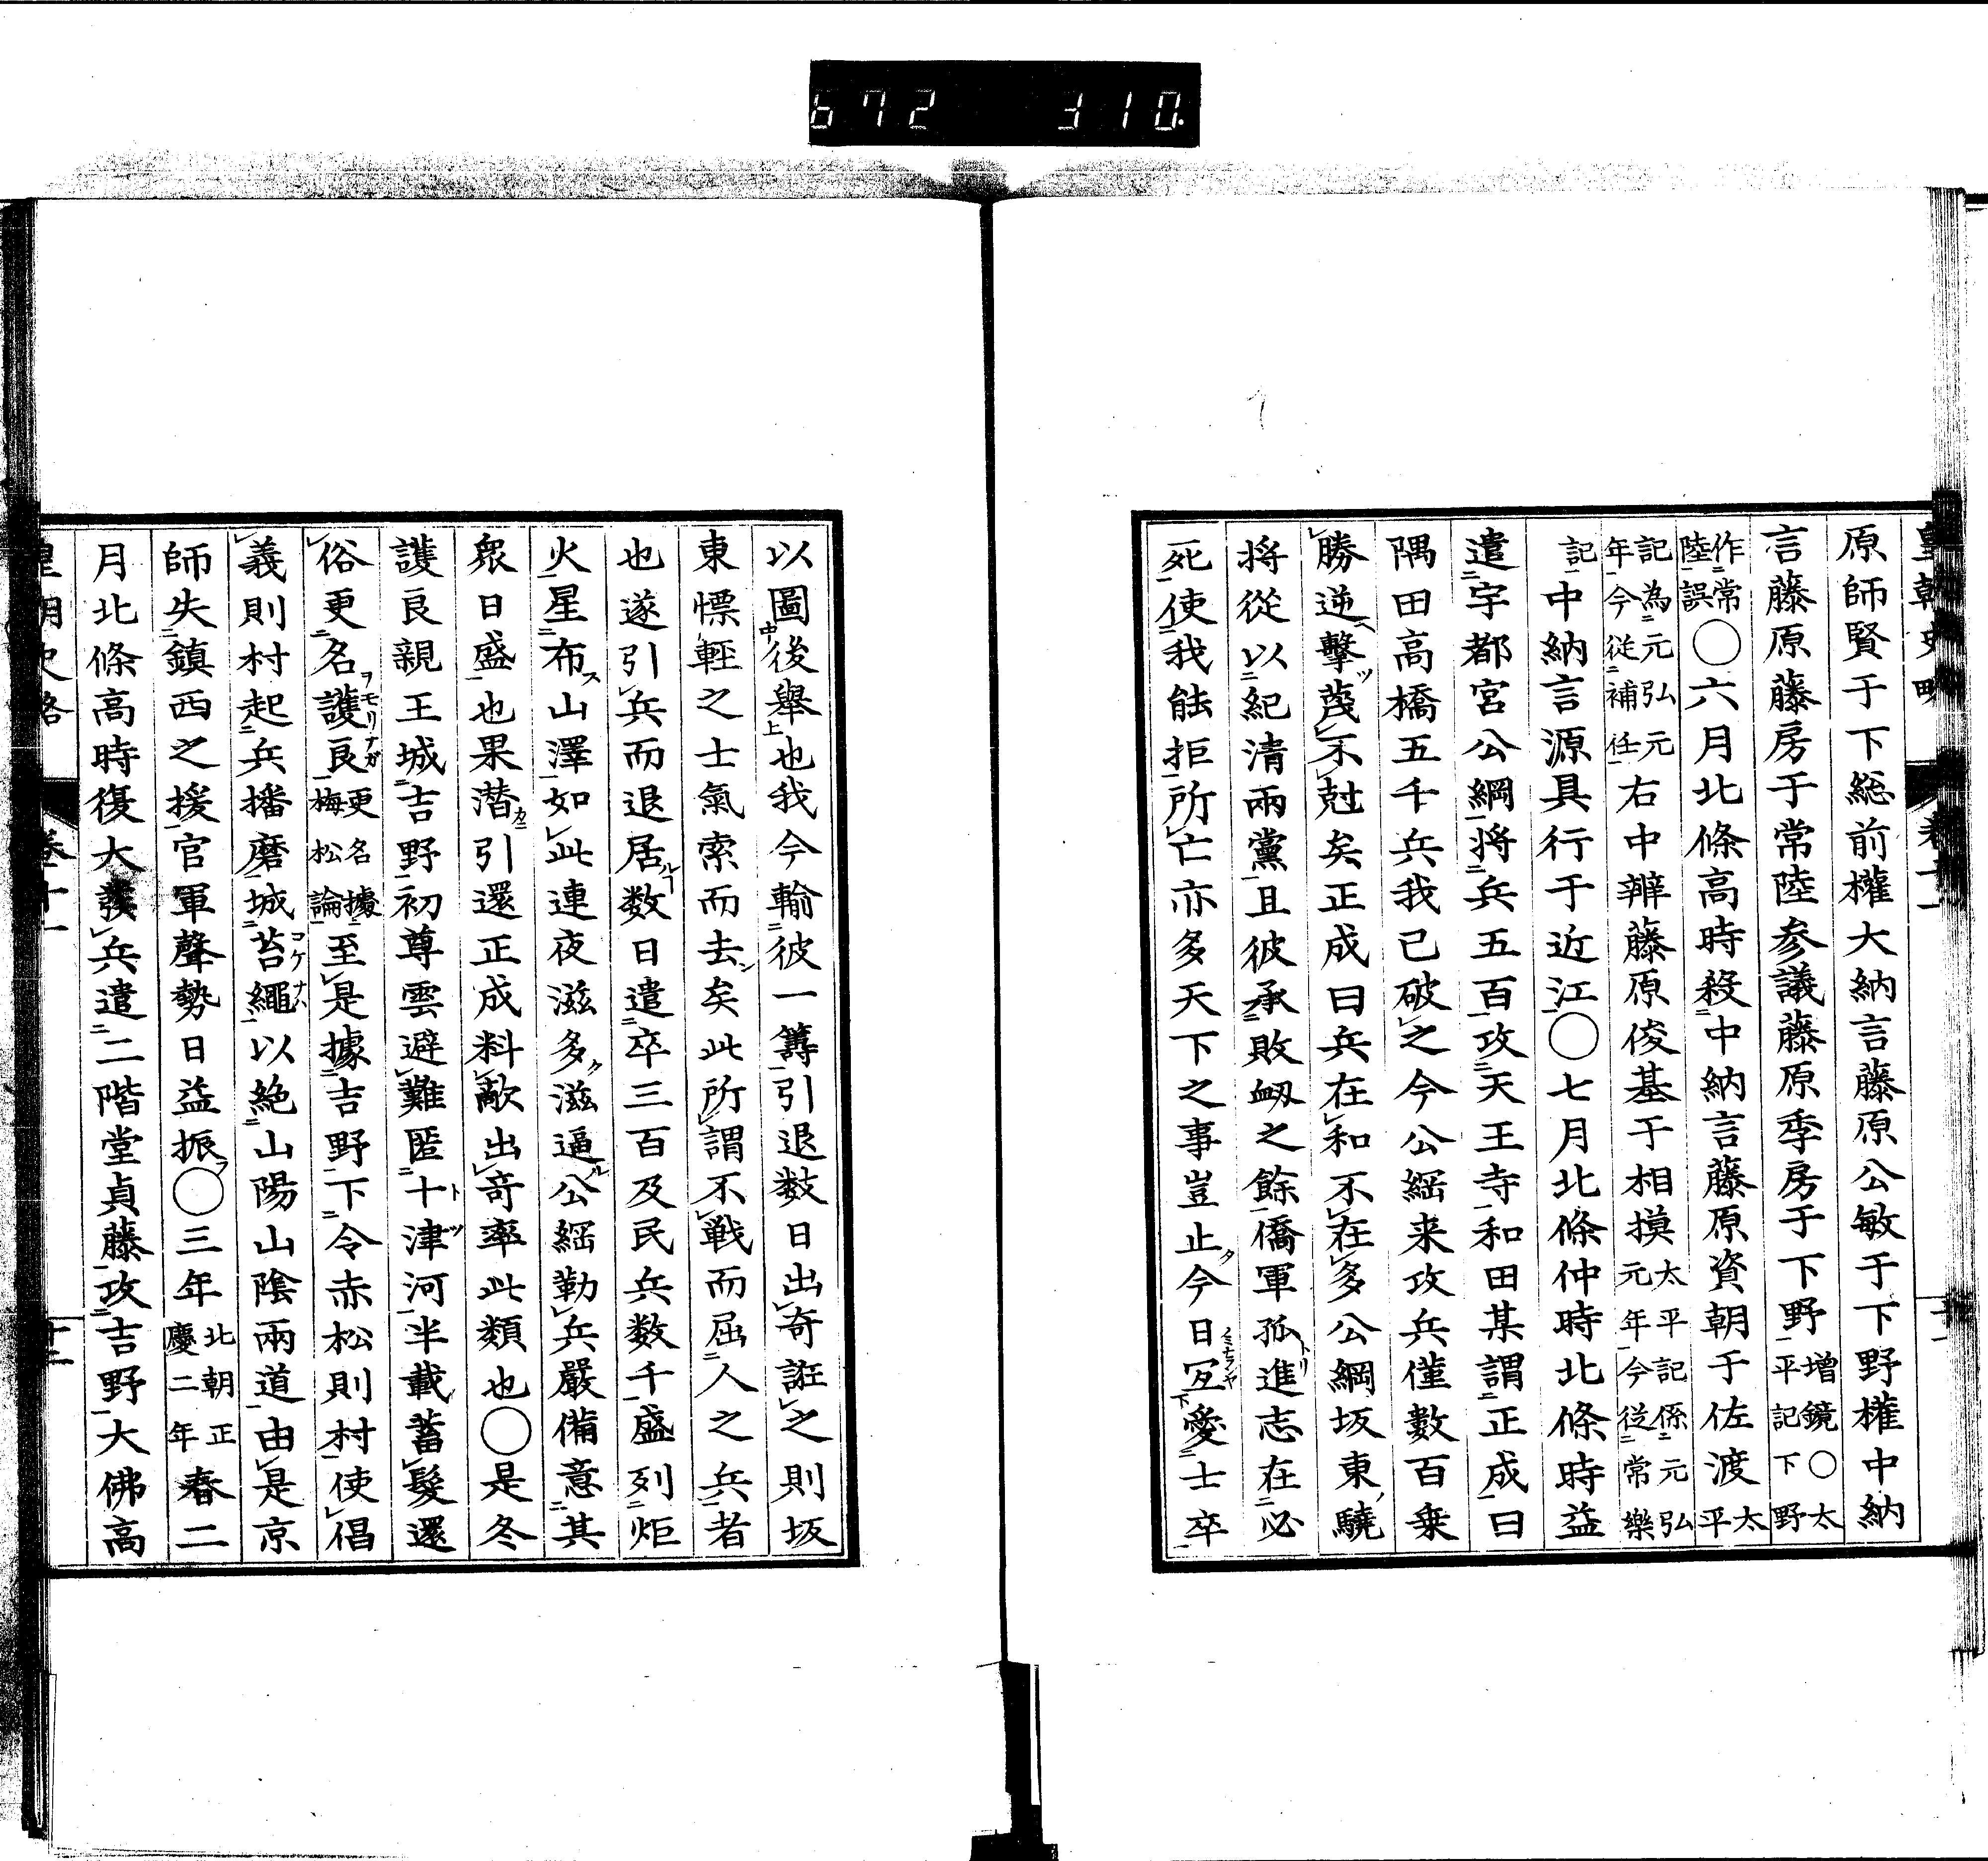 672 310.
皇朝史略 卷十一
原師賢于下總前權大納言藤原公敏于下野權中納
言藤原藤房于常陸参議藤原季房于下野增鏡○太平記下野
作常陸誤○六月北條高時殺中納言藤原資朝于佐渡太平
記為元弘元年今従補任右中辨藤原俊基于相摸太平記係元弘元年今従常樂
記中納言源具行于近江○七月北條仲時北條時益
遣宇都宮公綱将兵五百攻天王寺和田某謂正成曰
隅田高橋五千兵我已破之今公綱来攻兵僅數百乗
勝逆擊蔑不尅矣正成曰兵在和不在多公綱坂東驍
将從以紀清兩黨且彼承敗衂之餘僑軍孤進志在必
死使我能拒所亡亦多天下之事豈止今日冝愛士卒
以圖後舉也我今輸彼一籌引退数日出奇誑之則坂
東慓輕之士氣索而去矣此所謂不戰而屈人之兵者
也遂引兵而退居数日遣卒三百及民兵数千盛列炬
火星布山澤如此連夜滋多滋逼公綱勒兵嚴備意其
衆日盛也果潜引還正成料敵出奇率此類也○是冬
護良親王城吉野初尊雲避難匿十津河半載蓄髮還
俗更名護良更名據梅松論至是據吉野下令赤松則村使倡
義則村起兵播磨城苔繩以絶山陽山陰兩道由是京
師失鎮西之援官軍聲勢日益振○三年北朝正慶二年春二
月北條高時復大發兵遣二階堂貞藤攻吉野大佛高
皇朝史略 卷十一 十二